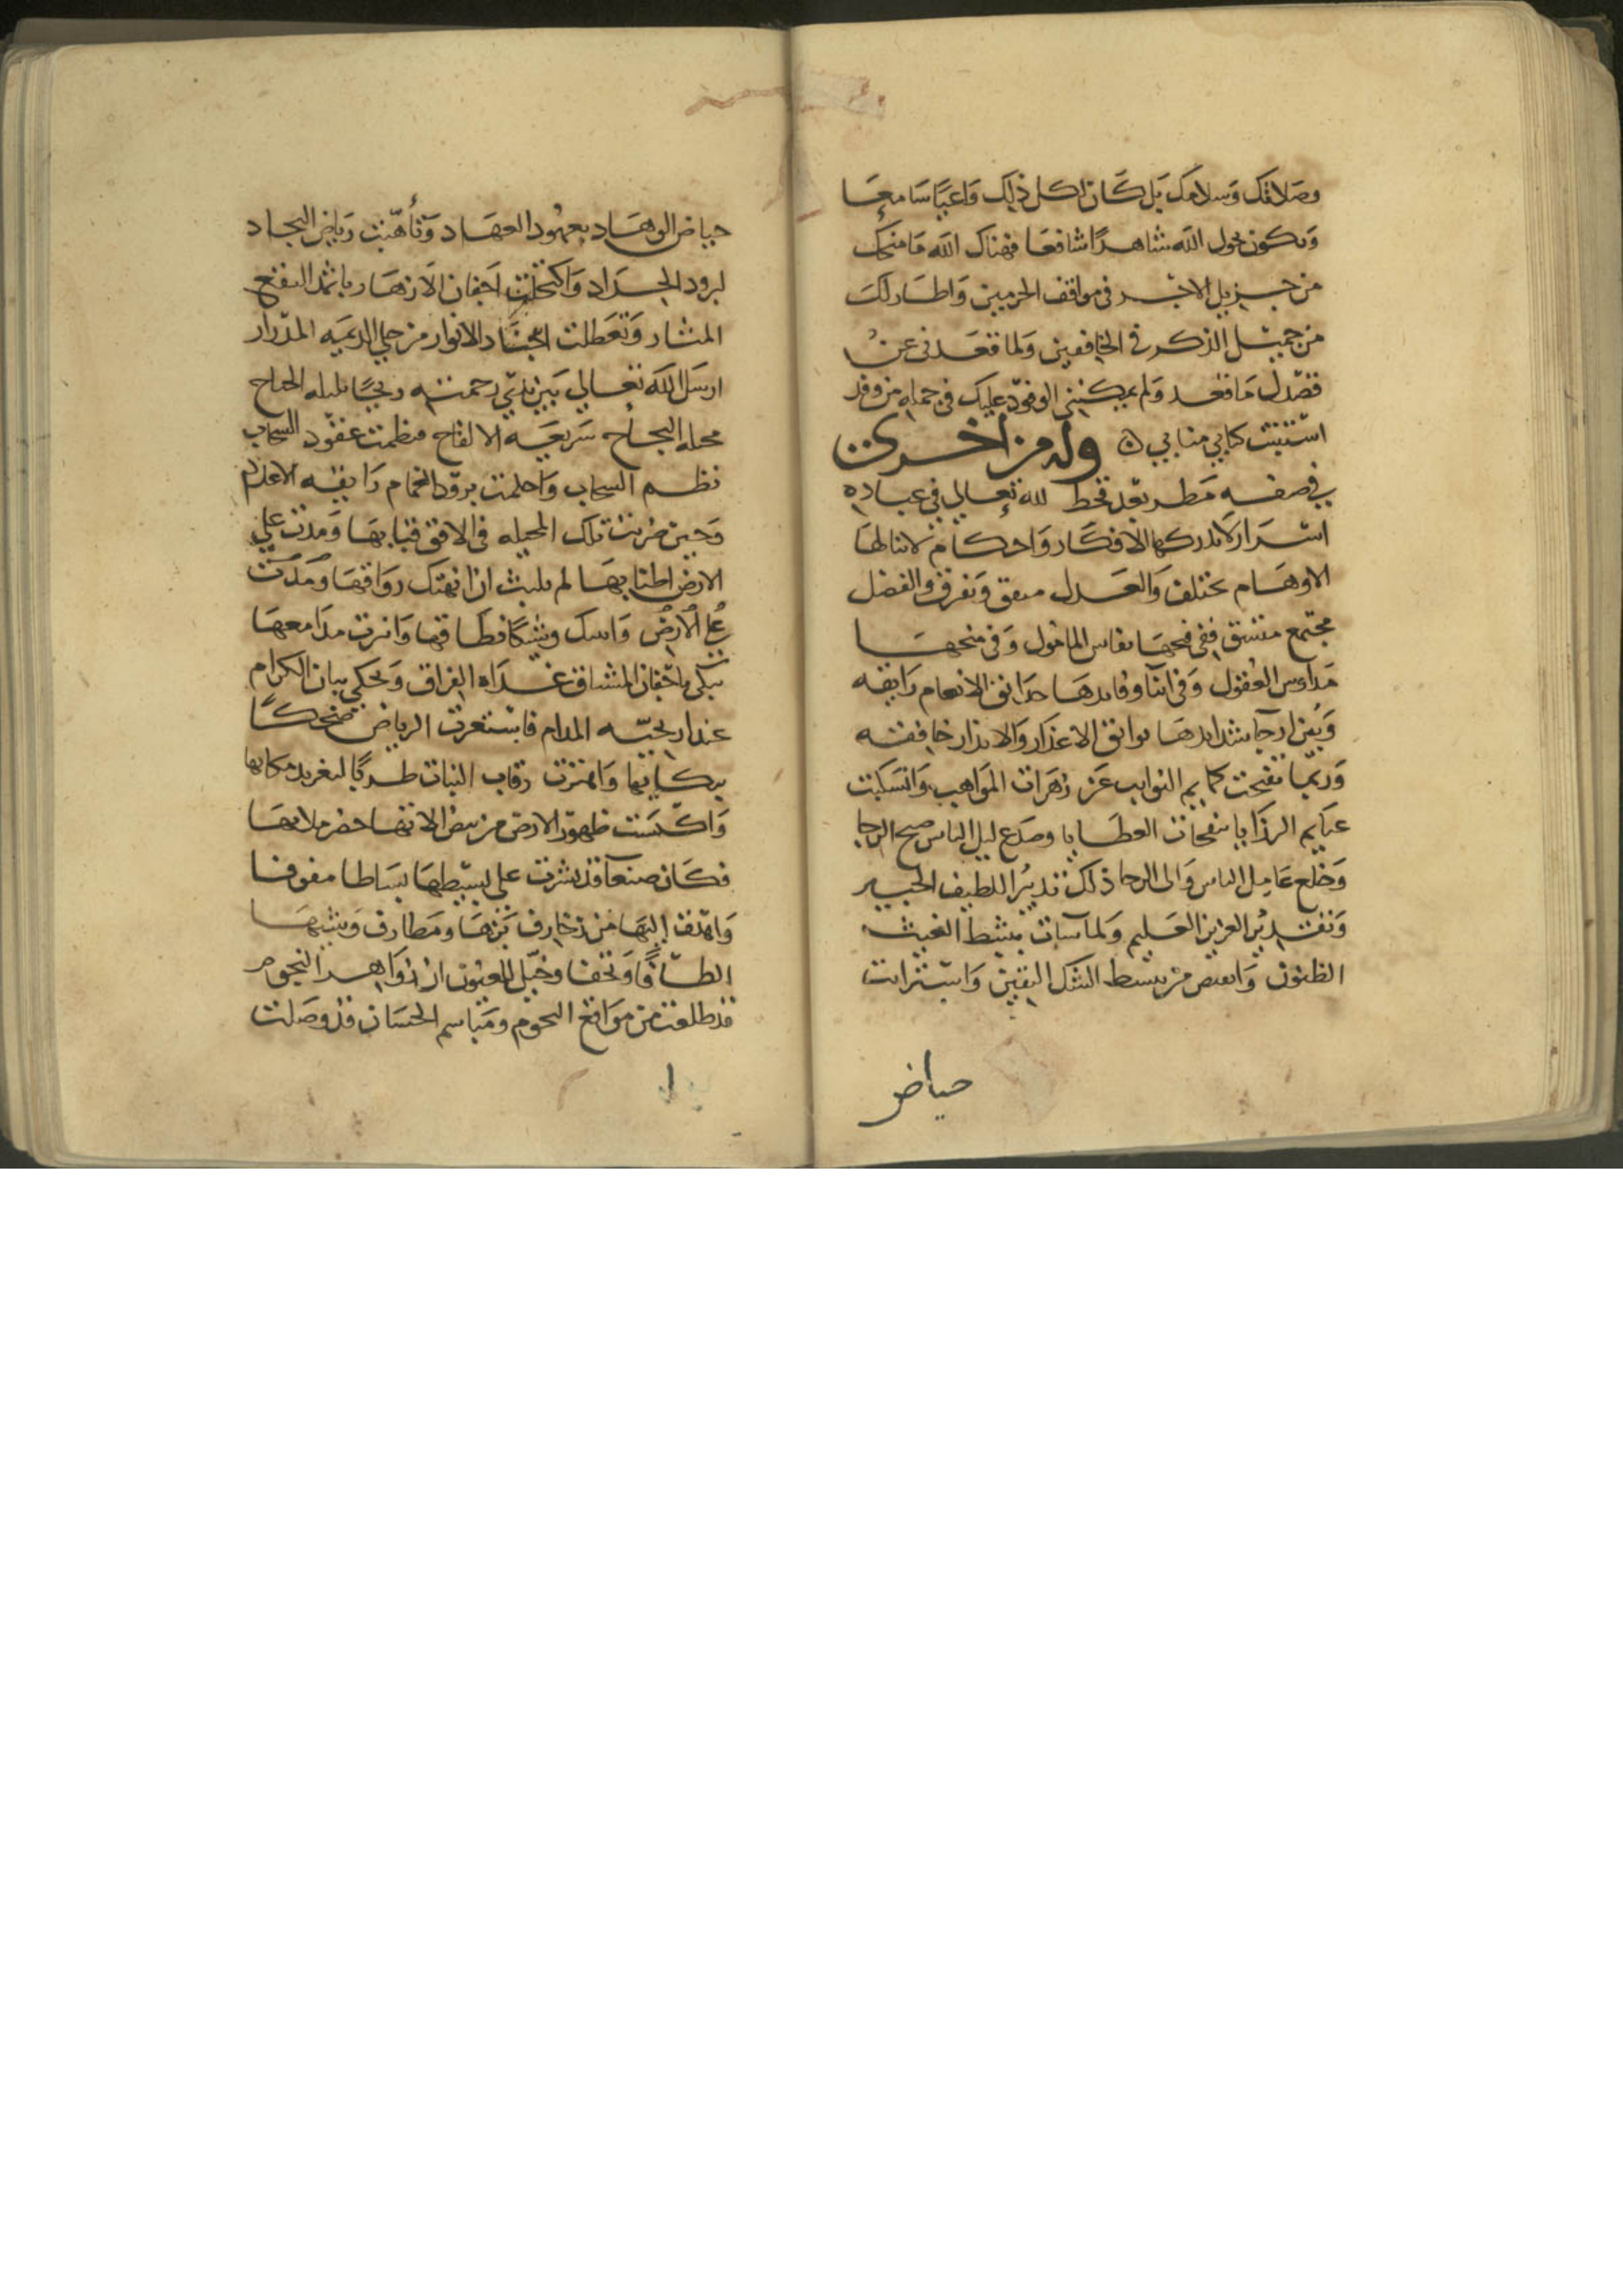 وصلاتك وسلامك بل كان لكل ذلك واعيا سامعا
ويكون بحول الله شاهدا شافعا فهناك الله ما منحك
من جزيل الاجر في مواقف الحرمين واطار لك
من جميل الذكر في الخافقين ولما قعد نى عن
قصدك ما قعد ولم يمكننى الوفود عليك في جملة من وفد
استنبت كتابي منابي ه وله من اخرى
في صفه مطر بعد قحط لله تعالى في عباده
اسرار لا تدركها الافكار واحكام لا تنالها
الاوهام تختلف والعدل متفق وتفرق والفضل
مجتمع متسق ففي فتحها نفاس المامول وفي منحها
مداوس العقول وفي اثناء فوايدها حدايق الانعام رايقه
وبين ارجاء شدايدها بوايق الاعذار والانذار خافقه
وربما تفتحت كمايم النوايب عن زهرات المواهب وانسكبت
غمايم الرزايا بنفحات العطايا وصدع ليل الياس صبح الرجا
وخلع عامل الياس والى الرجا ذلك تدبير اللطيف الخبير
وتقدير العزيز العليم ولما سات بتثبط الغيث
الظنون وانقبض من تبسط الشك اليقين واسترابت
حياض
حياض الوهاد بعهود العهاد وتأهبت رياض النجاد
لبرود الجداد واكتحلت اجفان الازهار باثمد النقع
المثار وتعطلت اجياد الانوار من حلي الديمه المدرار
ارسل الله تعالى بين يدي رحمته ريحا بليله الجناح
مخيلة النجاح سريعه الالقاح فنظمت عقود السحاب
نظم السحاب واحلمت برود الغمام رايقه الاعلام
وحين ضربت تلك المخيله في الافق قبابها ومدت على
الارض اطنابها لم تلبث ان انهتك رواقها ومدت
على الارض وانبتك وشكا نطاقها وانبرت مدامعها
تبكي باجفان المشتاق غداه الفراق وتحكي بنان الكرام
عند اريحيه المدام فاستغربت الرياض ضحكا
ببكائها واهتزت رقاب النبات طربا لتغريد مكايها
واكتست ظهور الارض من بيض انائها خضر ملائها
فكان صنعا قد نشرت على بسيطها بساطا مفوفا
واهدت اليها من زخارف بزها ومطارف وشيها
الطافا وتحفا وخيل للعيون ان زواهر النجوم
قد طلعت من مواقع التخوم ومباسم الحسان قد وصلت
ا